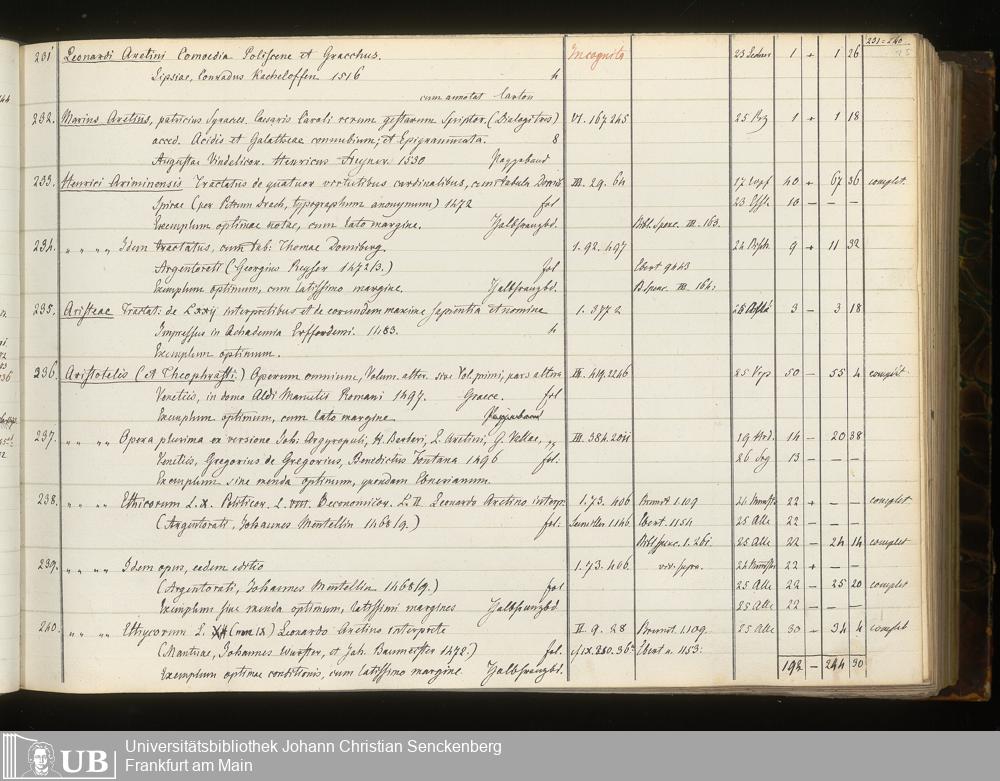 231 = 240
231 Leonardi Aretini Comoedia Poliscene et Gracchus. Incognita 1 + 1 26
Lipsiae, Conradus Kacheloffen 1516 4
cum annotat
232. Marius Aretius, patricius Syracus. Caesaris Caroli rerum gestarum Scriptor. VI. 167 245 1 + 1 18
acced. Acidis et Galatheae connubium; et Epigrammata. 8
Augustae Vindelicor. Henricus Steyner 1530 Pappeband
233. Henrici Ariminensis Tractatus de quatuor virtutibus cardinalibus, cum tabula III. 29. 64 40 + 67 36 complet.
Spirae (per Petrum Drach, typographum anonymum) 1472 fol 10 – – –
Exemplum optimae notae, cum lato margine. Halbfranzbd. Bibl. Spenc. III. 163.
234. " " " " Idem tractatus, cum tab: Thomae Dorniberg. 1. 92. 497 9 + 11 32
Argentorati (Georgius Reyser 1472/3.) fol Ebert 9443
Exemplum optimum, cum latissimo margine. Halbfranzbd. B. Spenc. III. 164:
235. Aristeae Tractat: de Lxxij interpretibus et de eorundem maxime sapientia et nomine 1. 377 2 3 – 3 18
Impressus in Achademia Erffordensi. 1483. 4
Exemplum optimum.
236. Aristotelis (et Theophrasti.) Operum omnium, Volum. alter. sive Vol. primi, pars altera III. 419. 2246 50 – 55 4 complet.
Venetiis, in domo Aldi Manutii Romani 1497. Graece. fol
Exemplum optimum, cum lato margine
237. " " " " Opera plurima ex versione Joh: Argyropuli, H. Barbari, L. Aretini, G. Vallae, III. 384. 2011 14 – 20 38
Venetiis, Gregorius de Gregorius, Benedictus Fontana 1496 fol. 13 – – –
Exemplum sine menda optimum, quondam Ebnerianum.
238. " " " " Ethicorum L. X. Politicor. L. VIII. Oeconomicor. L. II Leonardo Aretino interpr. 1. 73. 406 Brunet 1.109 22 + – – complet
(Argentorati, Johannes Mentellin 1468/9.) fol. Ebert. 1154 25 Alle 22 – – –
Bibl Spenc. 1. 261 25 Alle 22 – 24 14 complet
239. " " " " Idem opus, eadem editio 1. 73. 406 vid: supra. 22 + – –
(Argentorati, Johannes Mentellin 1468/9.) fol 25 Alle 22 – 25 20 complet
Exemplum sine menda optimum, latissimi margines Halbfranzbd 25 Alle 22 – – –
240. " " " " Ethycorum L. (non IX) Leonardo Aretino interprete II. 9. 28 Brunet. 1.109. 25 Alle 30 – 34 4 complet
(Mantuae, Johannes Wurster, et Joh. Baumeister 1478.) fol. cf IX. 280. 36a Ebert n. 1153:
Exemplum optimae conditionis, cum latissimo margine. Halbfranzbd. 192 – 244 30
UB
Universitätsbibliothek Johann Christian Senckenberg
Frankfurt am Main